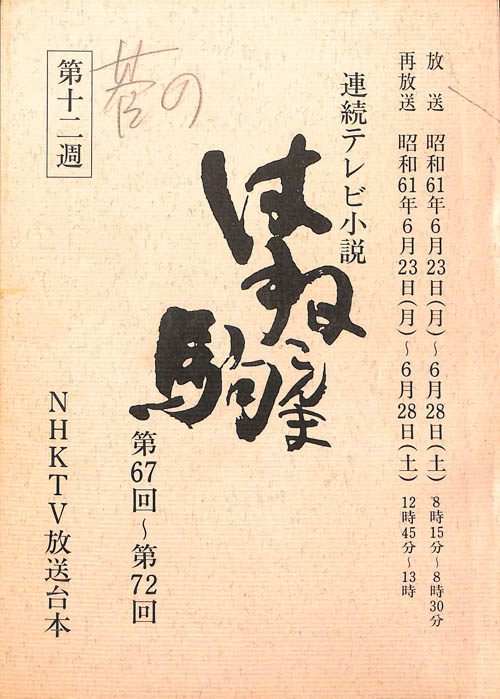 放送 昭和61年6月23日(月)～6月28日(土) 8時15分～8時30分
再放送 昭和61年6月23日(月)～6月28日(土) 12時45分～13時
連続テレビ小説
はね駒
こんま
第67回～第72回
第十二週
NHKTV放送台本